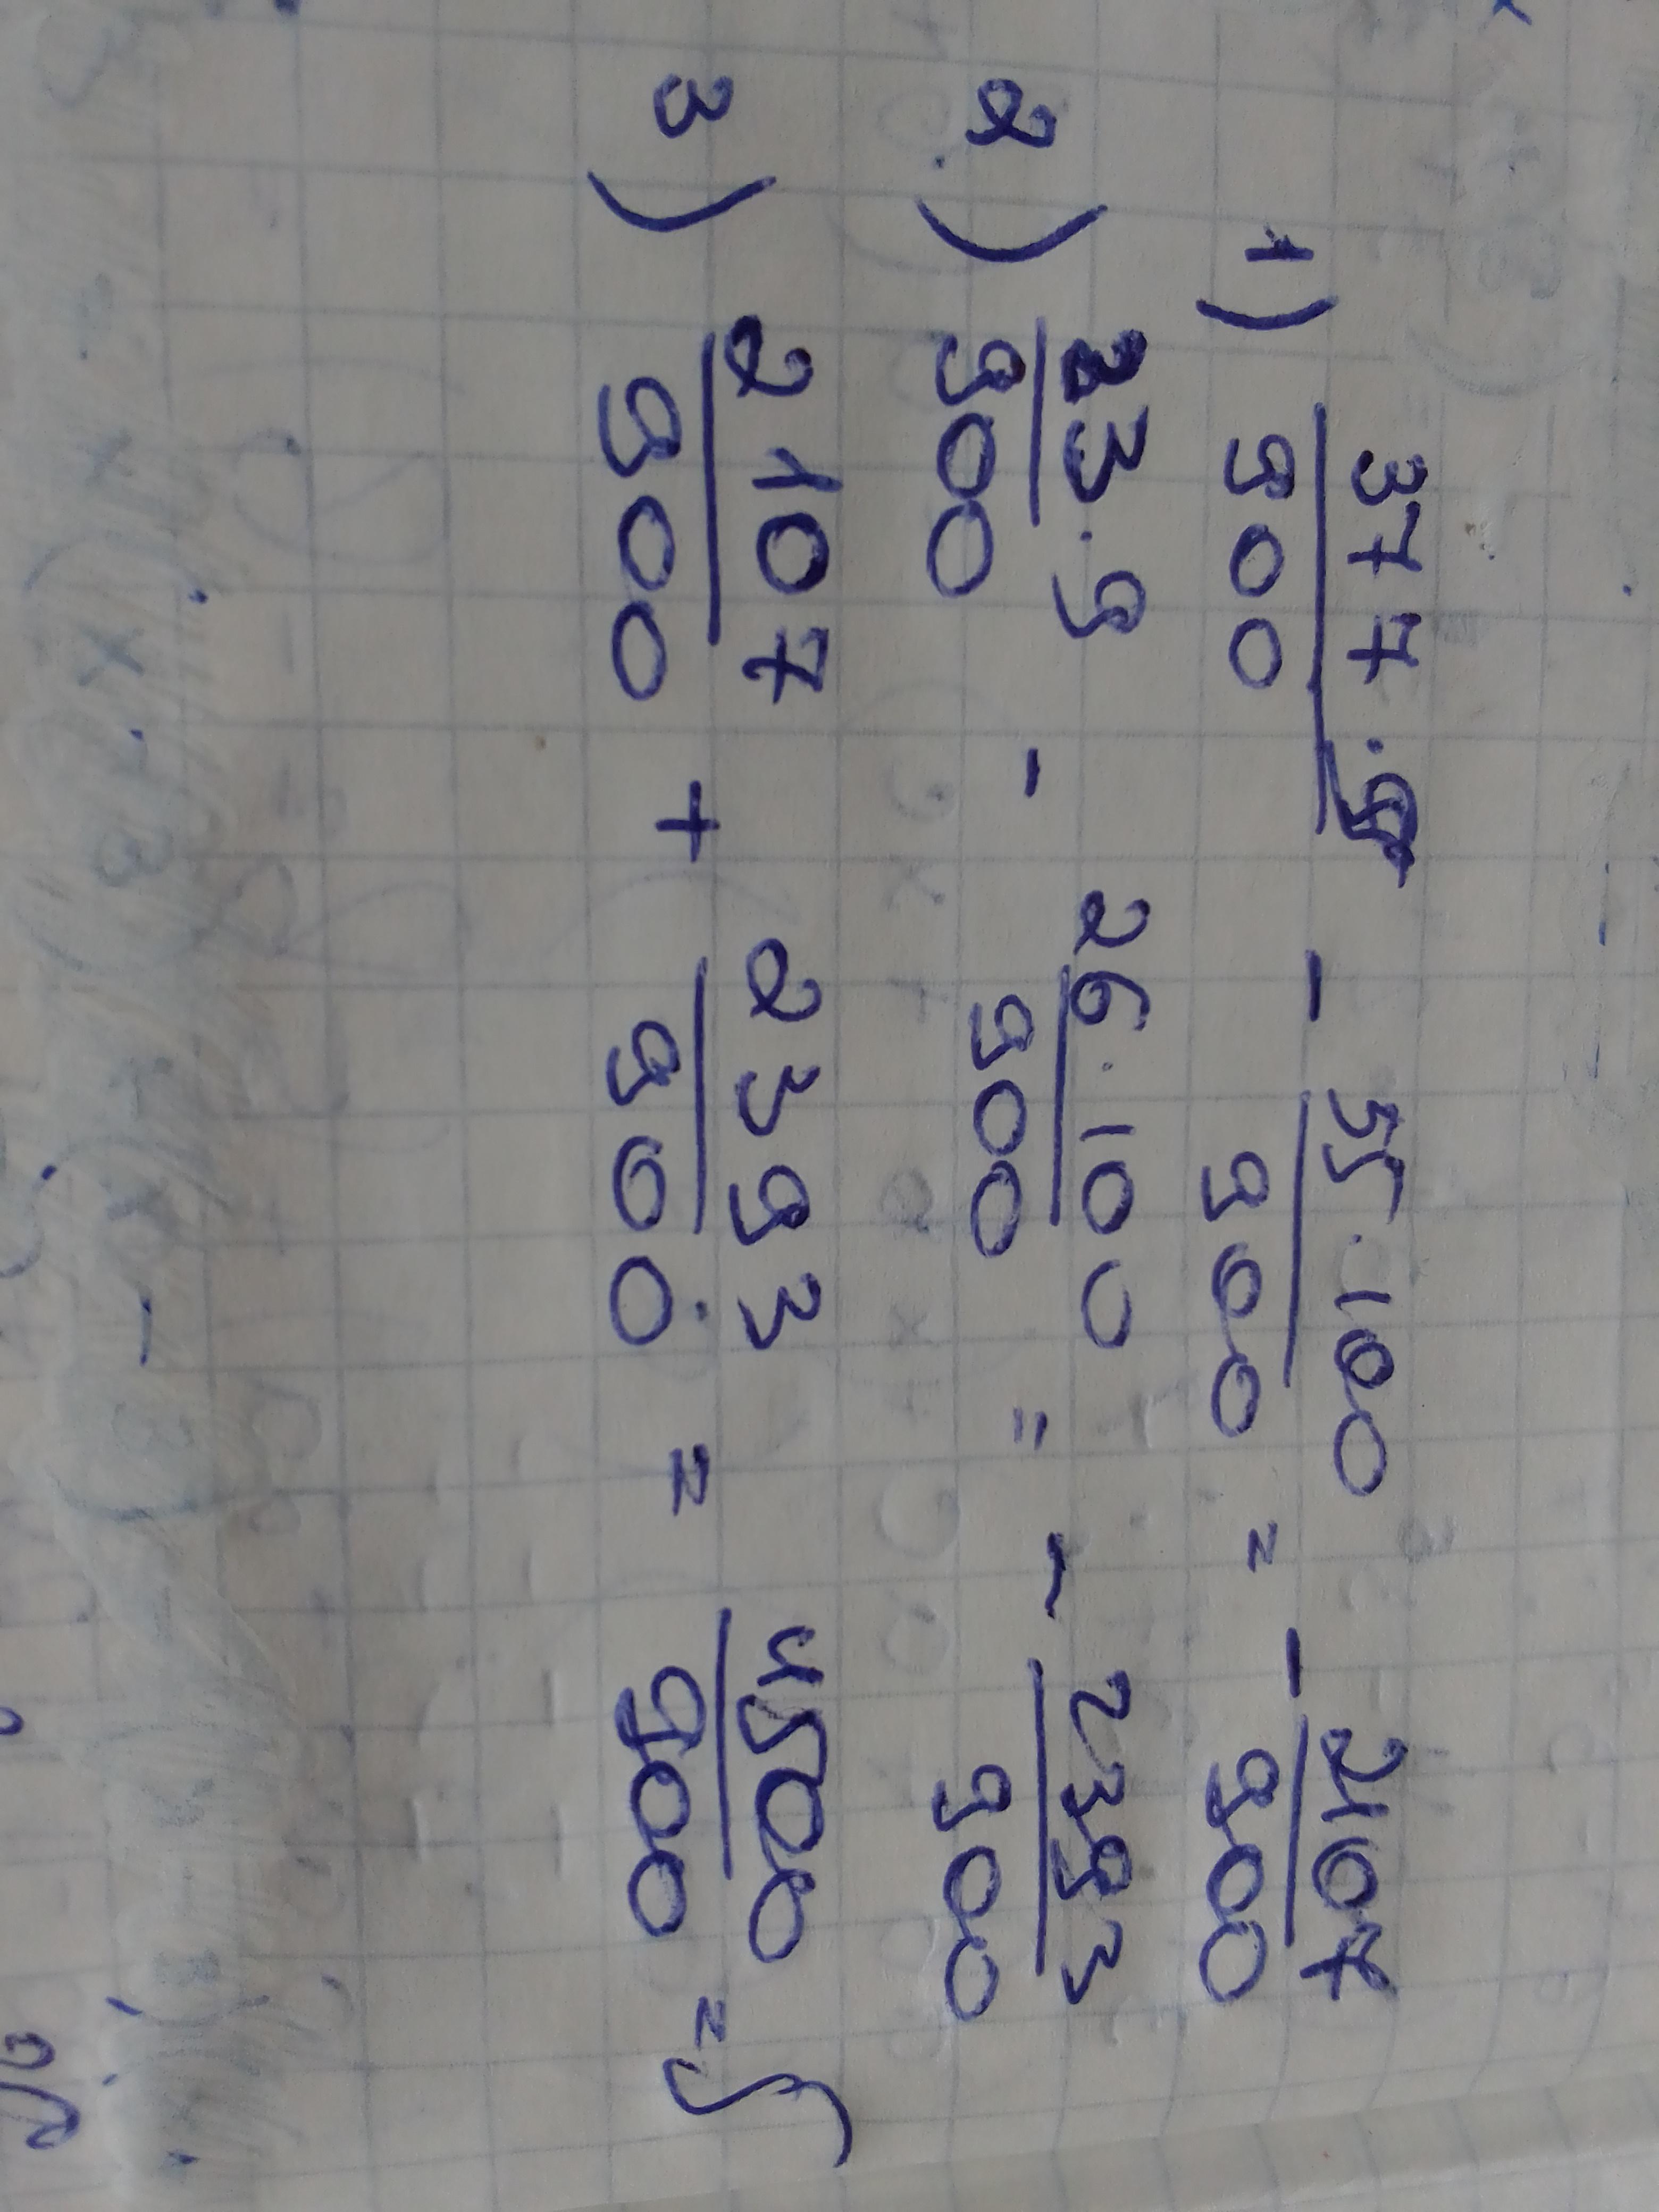 1) 377·9/900 - 55·100/900 = - 2107/900
2) 23·9/900 - 26·100/900 = - 2393/900
3) 2107/900 + 2393/900 = 4500/900 = 5